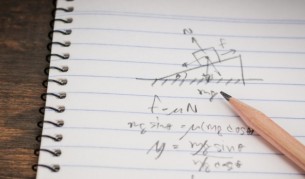 N
f
mg
f = μN
mg sinθ = μ(mg cosθ
μ = mg sinθ
mg cosθ